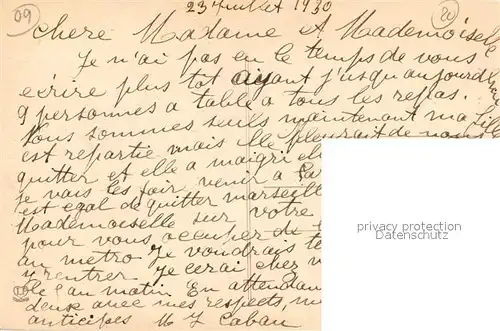 09
23 Juillet 1930
20
Chere Madame et Mademoiselle
Je n'ai pas eu le temps de vous
ecrire plus tot ayant jusqu'aujourd'hui
9 personnes a table a tous les repas.
Nous sommes seuls maintenant ma fille
est repartie mais elle pleurait de nous
quitter et elle a maigri
je vais les faire venir a
est egal de quitter marseille
Mademoiselle sur votre
pour vous occuper de
au metro Je voudrais
y rentrer. Je serai chez
au matin En attendant
deux avec mes respects,
anticipés
privacy protection
Datenschutz